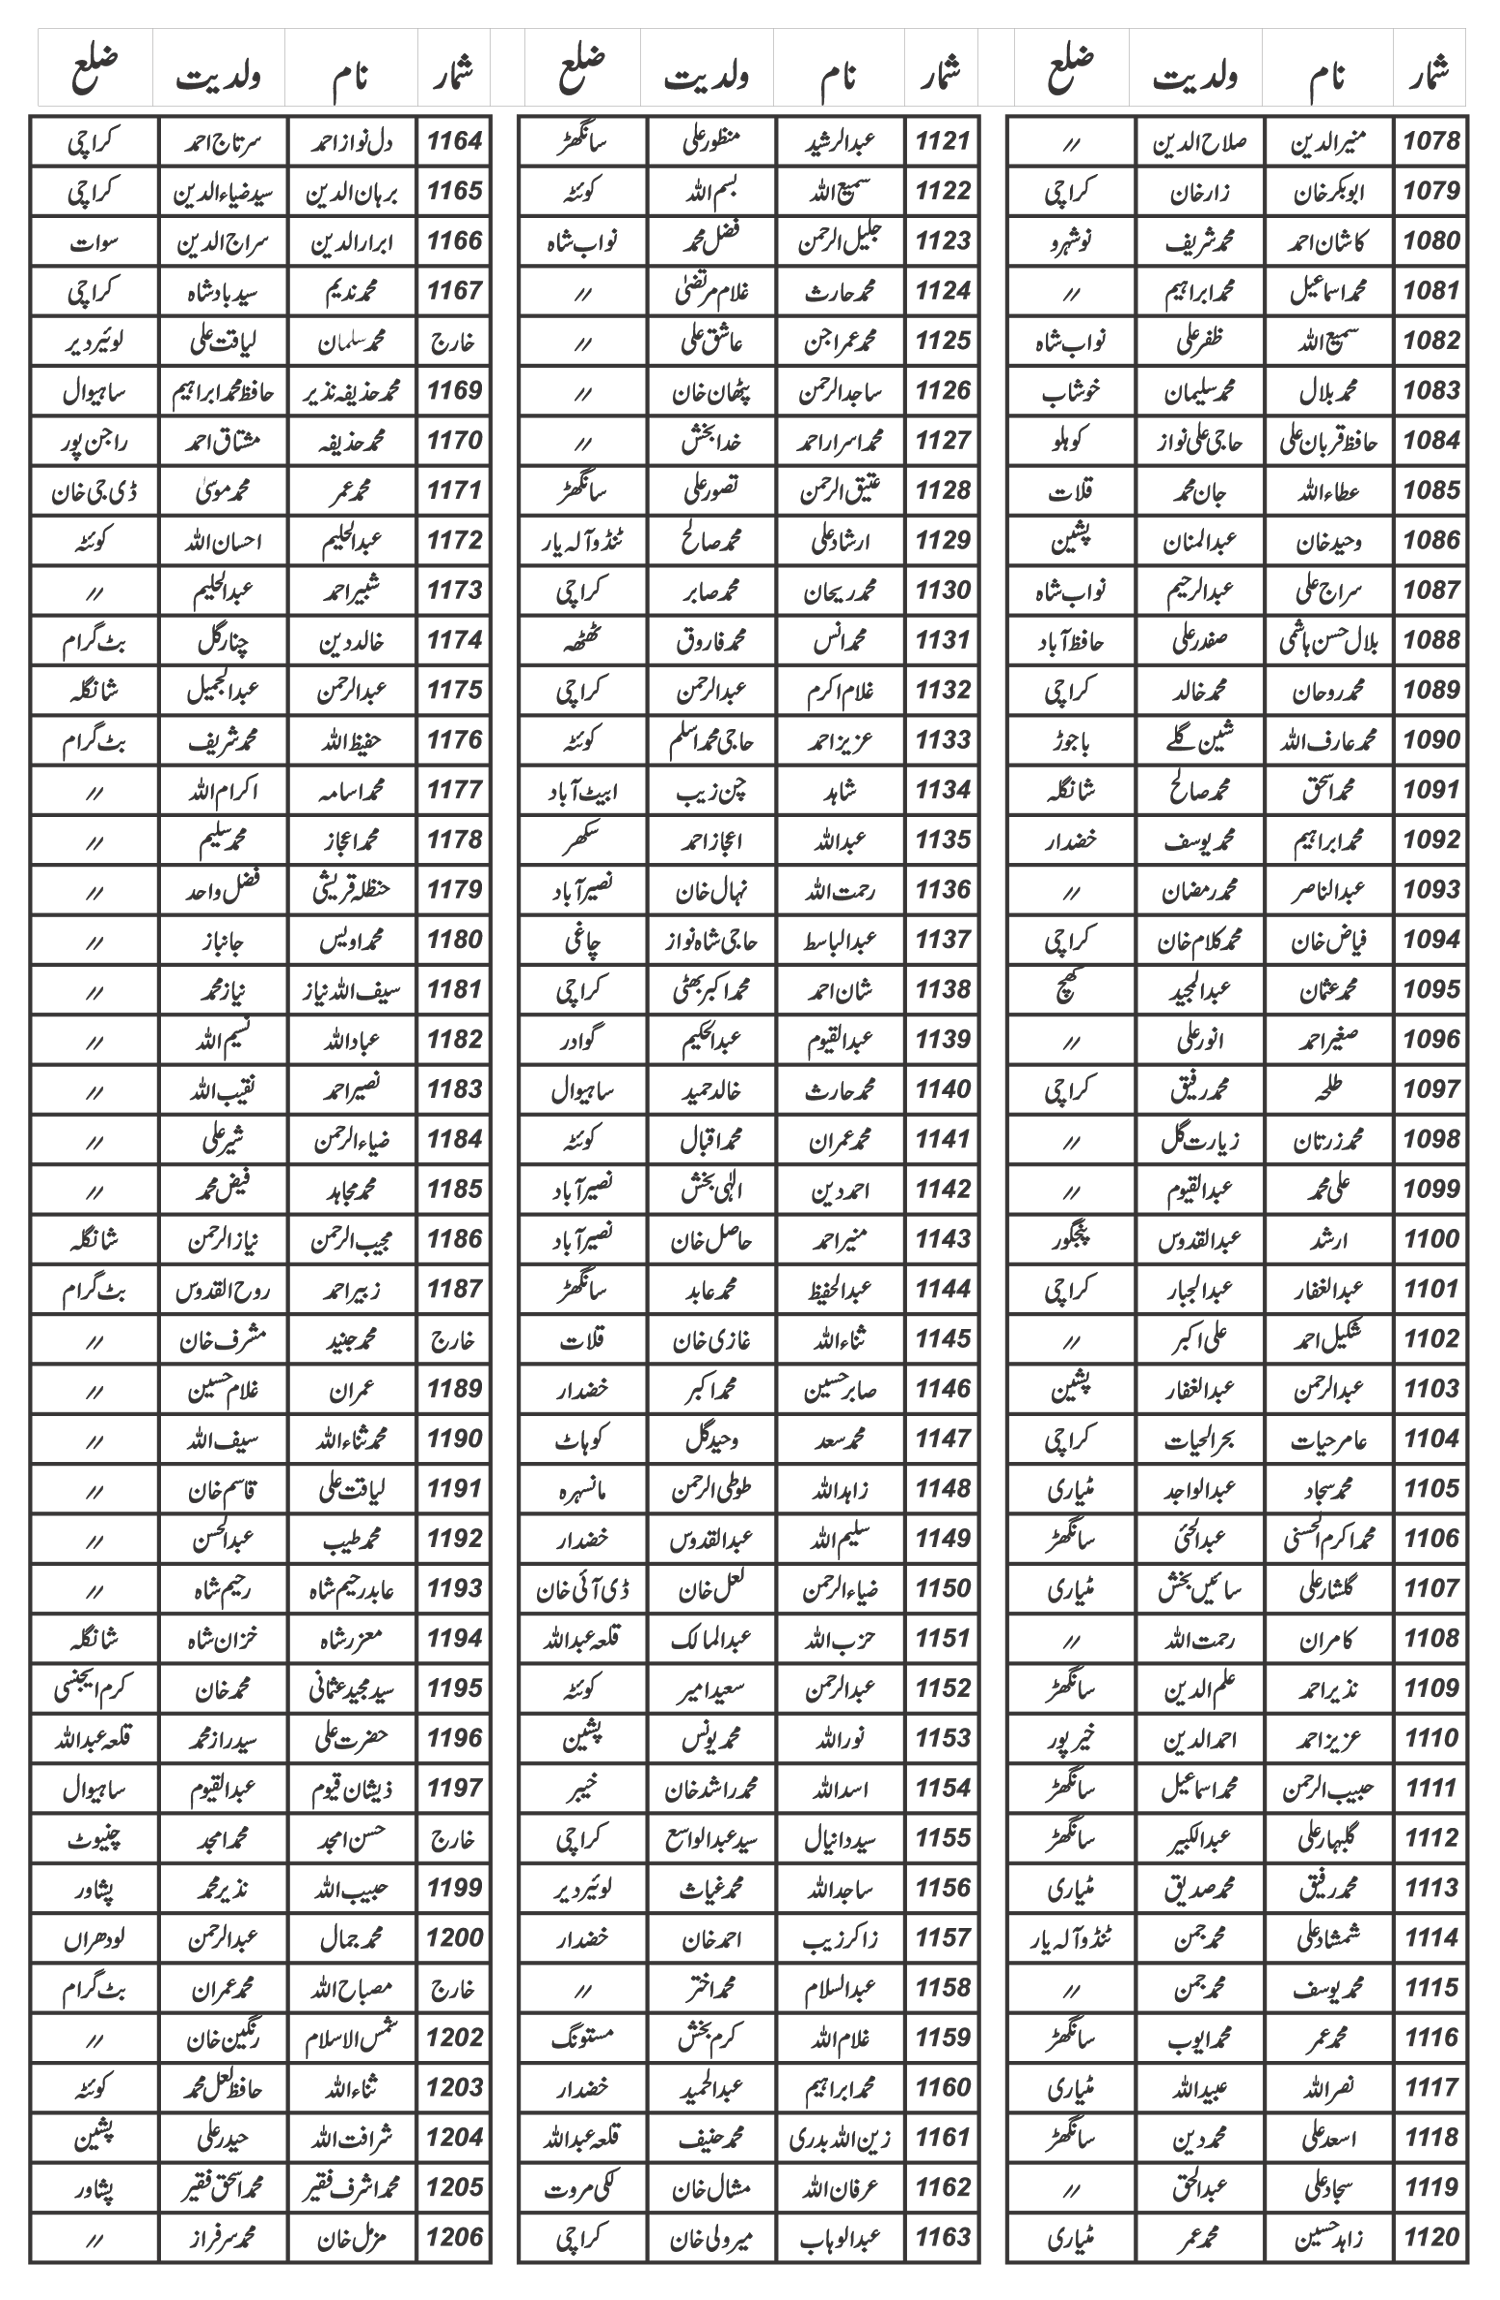 شمار نام ولدیت ضلع
1078 منیرالدین صلاح الدین //
1079 ابوبکرخان زارخان کراچی
1080 کاشان احمد محمدشریف نوشہرو
1081 محمداسماعیل محمدابراہیم //
1082 سمیع اللہ ظفرعلی نواب شاہ
1083 محمدبلال محمدسلیمان خوشاب
1084 حافظ قربان علی حاجی علی نواز کوہلو
1085 عطاءاللہ جان محمد قلات
1086 وحیدخان عبدالمنان پشین
1087 سراج علی عبدالرحیم نواب شاہ
1088 بلال حسن ہاشمی صفدرعلی حافظ آباد
1089 محمدروحان محمدخالد کراچی
1090 محمدعارف اللہ شین گلے باجوڑ
1091 محمداسحٰق محمدصالح شانگلہ
1092 محمدابراہیم محمدیوسف خضدار
1093 عبدالناصر محمدرمضان //
1094 فیاض خان محمدکلام خان کراچی
1095 محمدعثمان عبدالمجید کھچ
1096 صغیراحمد انورعلی //
1097 طلحہ محمدرفیق کراچی
1098 محمدزرتان زیارت گل //
1099 علی محمد عبدالقیوم //
1100 ارشد عبدالقدوس پنجگور
1101 عبدالغفار عبدالجبار کراچی
1102 شکیل احمد علی اکبر //
1103 عبدالرحمن عبدالغفار پشین
1104 عامرحیات بحرالحیات کراچی
1105 محمدسجاد عبدالواجد مٹیاری
1106 محمداکرم الحسنی عبدالحئی سانگھڑ
1107 گلشارعلی سائیں بخش مٹیاری
1108 کامران رحمت اللہ //
1109 نذیراحمد علم الدین سانگھڑ
1110 عزیزاحمد احمدالدین خیرپور
1111 حبیب الرحمن محمداسماعیل سانگھڑ
1112 گلبہارعلی عبدالکبیر سانگھڑ
1113 محمدرفیق محمدصدیق مٹیاری
1114 شمشادعلی محمدجمن ٹنڈوآلہ یار
1115 محمدیوسف محمدجمن //
1116 محمدعمر محمدایوب سانگھڑ
1117 نصراللہ عبیداللہ مٹیاری
1118 اسعدعلی محمددین سانگھڑ
1119 سجادعلی عبدالحق //
1120 زاہدحسین محمدعمر مٹیاری
شمار نام ولدیت ضلع
1121 عبدالرشید منظورعلی سانگھڑ
1122 سمیع اللہ بسم اللہ کوئٹہ
1123 جلیل الرحمن فضل محمد نواب شاہ
1124 محمدحارث غلام مرتضیٰ //
1125 محمدعمراجن عاشق علی //
1126 ساجدالرحمن پٹھان خان //
1127 محمداسراراحمد خدابخش //
1128 عتیق الرحمن تصورعلی سانگھڑ
1129 ارشادعلی محمدصالح ٹنڈوآلہ یار
1130 محمدریحان محمدصابر کراچی
1131 محمدانس محمدفاروق ٹھٹھہ
1132 غلام اکرم عبدالرحمن کراچی
1133 عزیزاحمد حاجی محمداسلم کوئٹہ
1134 شاہد چن زیب ایبٹ آباد
1135 عبداللہ اعجازاحمد سکھر
1136 رحمت اللہ نہال خان نصیرآباد
1137 عبدالباسط حاجی شاہ نواز چاغی
1138 شان احمد محمداکبربھٹی کراچی
1139 عبدالقیوم عبدالحکیم گوادر
1140 محمدحارث خالدحمید ساہیوال
1141 محمدعمران محمداقبال کوئٹہ
1142 احمددین الٰہی بخش نصیرآباد
1143 منیراحمد حاصل خان نصیرآباد
1144 عبدالحفیظ محمدعابد سانگھڑ
1145 ثناءاللہ غازی خان قلات
1146 صابرحسین محمداکبر خضدار
1147 محمدسعد وحیدگل کوہاٹ
1148 زاہداللہ طوطی الرحمن مانسہرہ
1149 سلیم اللہ عبدالقدوس خضدار
1150 ضیاءالرحمن لعل خان ڈی آئی خان
1151 حزب اللہ عبدالمالک قلعہ عبداللہ
1152 عبدالرحمن سعیدامیر کوئٹہ
1153 نوراللہ محمدیونس پشین
1154 اسداللہ محمدراشدخان خیبر
1155 سیددانیال سیدعبدالواسع کراچی
1156 ساجداللہ محمدغیاث لوئیردیر
1157 زاکرزیب احمدخان خضدار
1158 عبدالسلام محمداختر //
1159 غلام اللہ کرم بخش مستونگ
1160 محمدابراہیم عبدالحمید خضدار
1161 زین اللہ بدری محمدحنیف قلعہ عبداللہ
1162 عرفان اللہ مشال خان لکی مروت
1163 عبدالوہاب میرولی خان کراچی
شمار نام ولدیت ضلع
1164 دل نوازاحمد سرتاج احمد کراچی
1165 برہان الدین سیدضیاءالدین کراچی
1166 ابرارالدین سراج الدین سوات
1167 محمدندیم سیدبادشاہ کراچی
خارج محمدسلمان لیاقت علی لوئیردیر
1169 محمدحذیفہ نذیر حافظ محمدابراہیم ساہیوال
1170 محمدحذیفہ مشتاق احمد راجن پور
1171 محمدعمر محمدموسیٰ ڈی جی خان
1172 عبدالحلیم احسان اللہ کوئٹہ
1173 شبیراحمد عبدالحلیم //
1174 خالددین چنارگل بٹ گرام
1175 عبدالرحمن عبدالجمیل شانگلہ
1176 حفیظ اللہ محمدشریف بٹ گرام
1177 محمداسامہ اکرام اللہ //
1178 محمداعجاز محمدسلیم //
1179 حنظلہ قریشی فضل واحد //
1180 محمداویس جانباز //
1181 سیف اللہ نیاز نیازمحمد //
1182 عباداللہ نسیم اللہ //
1183 نصیراحمد نقیب اللہ //
1184 ضیاءالرحمن شیرعلی //
1185 محمدمجاہد فیض محمد //
1186 مجیب الرحمن نیازالرحمن شانگلہ
1187 زبیراحمد روح القدوس بٹ گرام
خارج محمدجنید مشرف خان //
1189 عمران غلام حسین //
1190 محمدثناءاللہ سیف اللہ //
1191 لیاقت علی قاسم خان //
1192 محمدطیب عبدالحسن //
1193 عابدرحیم شاہ رحیم شاہ //
1194 معزرشاہ خزان شاہ شانگلہ
1195 سیدمجیدعثمانی محمدخان کرم ایجنسی
1196 حضرت علی سیدرازمحمد قلعہ عبداللہ
1197 ذیشان قیوم عبدالقیوم ساہیوال
خارج حسن امجد محمدامجد چنیوٹ
1199 حبیب اللہ نذیرمحمد پشاور
1200 محمدجمال عبدالرحمن لودھراں
خارج مصباح اللہ محمدعمران بٹ گرام
1202 شمس الاسلام رنگین خان //
1203 ثناءاللہ حافظ لعل محمد کوئٹہ
1204 شرافت اللہ حیدرعلی پشین
1205 محمداشرف فقیر محمداسحٰق فقیر پشاور
1206 مزمل خان محمدسرفراز //